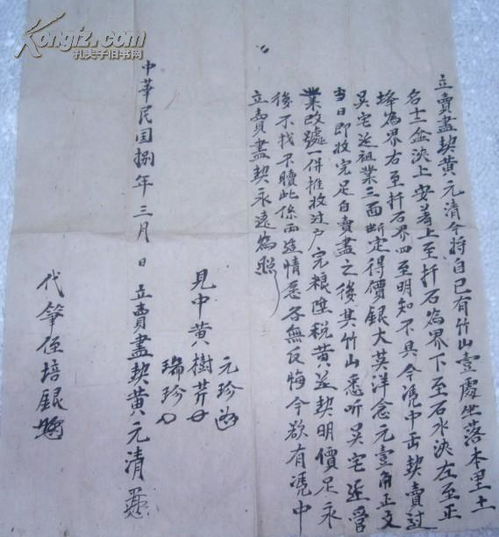 立賣盡契黄元清今將自己有竹山壹處坐落本里土
名士金決上安着上至扦石為界下至石水決左至正
垾為界右至扦石界四至明知不具今凴中缶契賣过
吴宅迯祖業三面断定得價銀大英洋念元壹角正其
當日即收完足自賣盡之後其竹山悉听吴宅延營
業改號一併推收过户完粮陞税黄㳄契明價足永
後不找不贖此係两造情愿各無反悔今欲有凴中
立賣盡契永遠為照
元珍
見中黄樹芹
瑞珍
中華民国捌年三月 日立賣盡契黄元清
代筆侄培銀
Kongfz.com
孔夫子旧书网